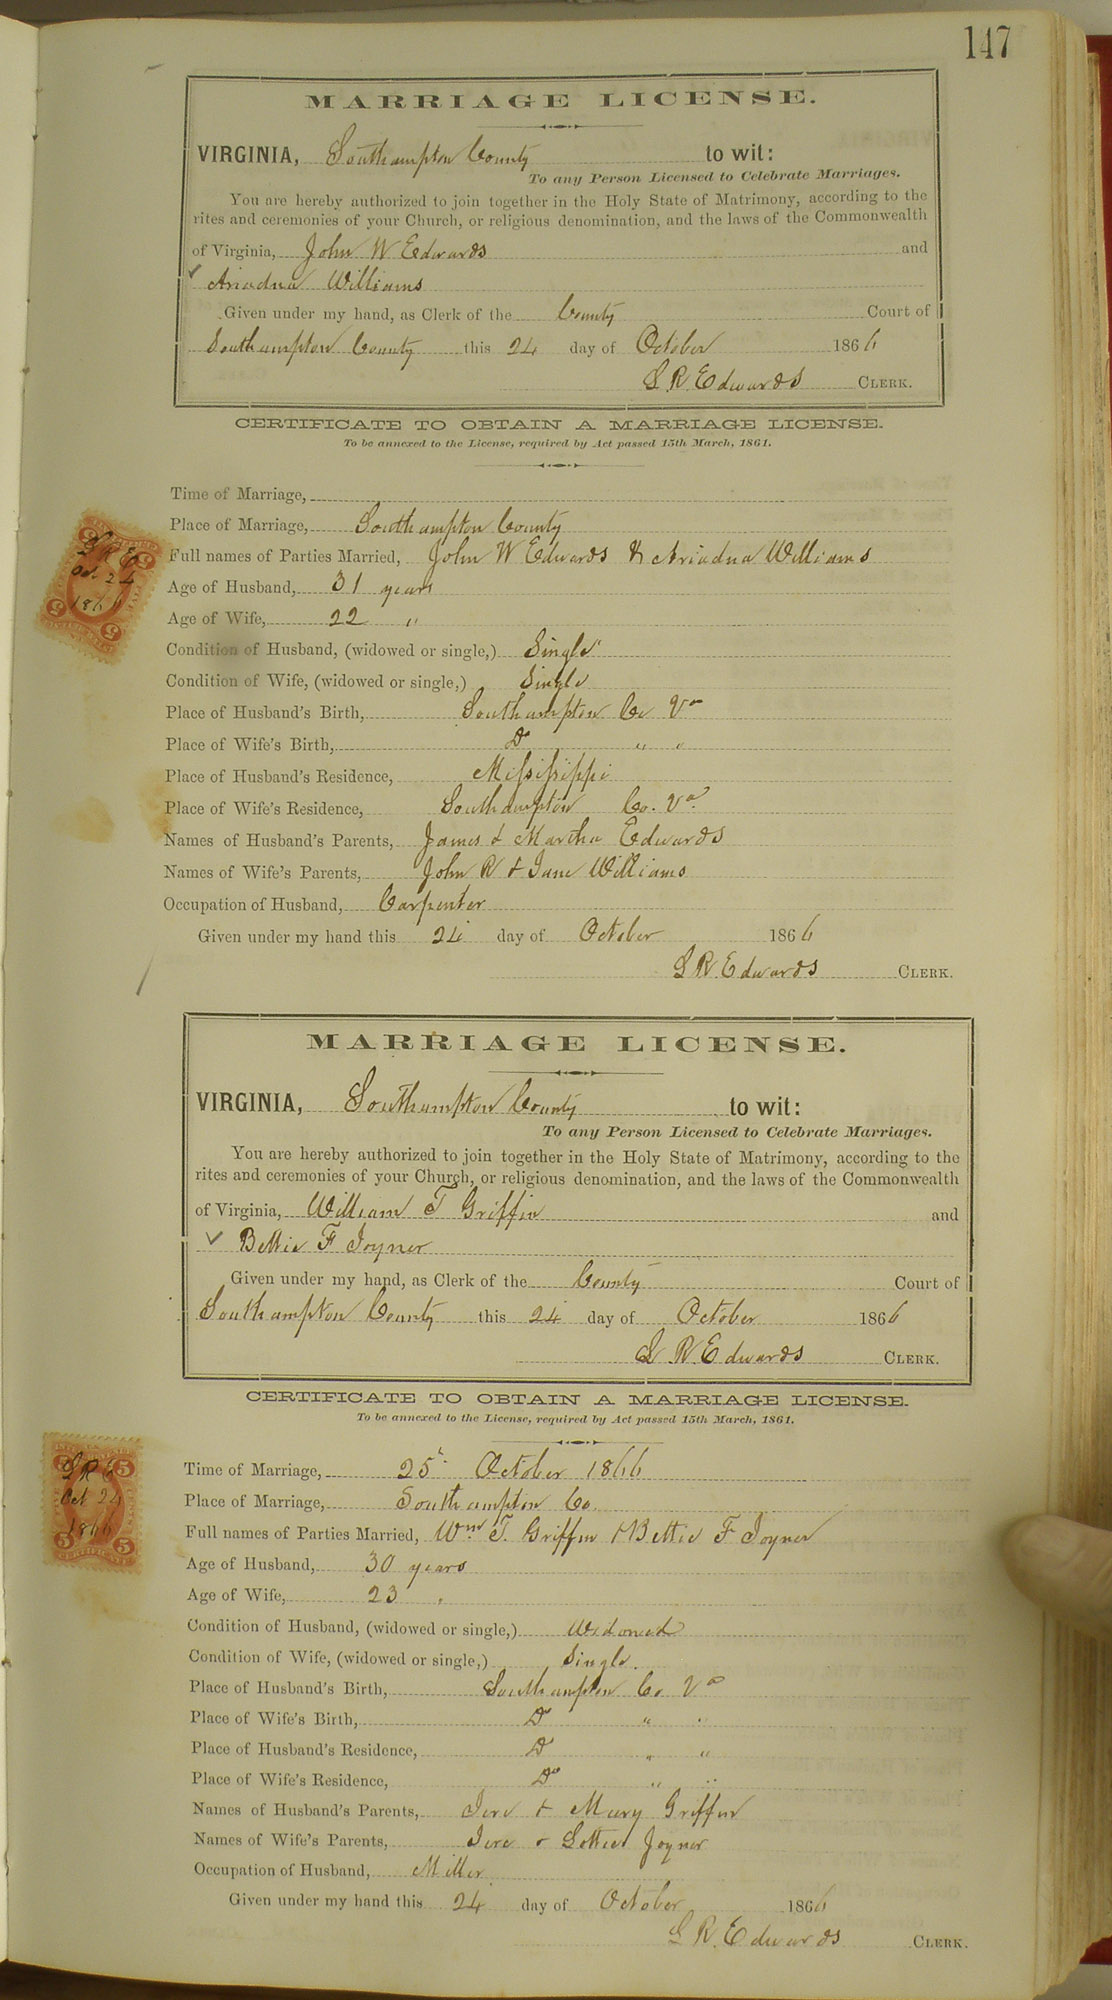 147
MARRIAGE LICENSE.
VIRGINIA, Southampton County to wit:
To any Person Licensed to Celebrate Marriages.
You are hereby authorized to join together in the Holy State of Matrimony, according to the
rites and ceremonies of your Church, or religious denomination, and the laws of the Commonwealth
of Virginia, John W Edwards and
✓ Ariadna Williams
Given under my hand, as Clerk of the County Court of
Southampton County this 24 day of October 1866
L R Edwards CLERK.
CERTIFICATE TO OBTAIN A MARRIAGE LICENSE.
To be annexed to the License, required by Act passed 15th March, 1861.
Time of Marriage,
Place of Marriage, Southampton County
Full names of Parties Married, John W Edwards & Ariadna Williams
Age of Husband, 31 years
Age of Wife, 22 "
Condition of Husband, (widowed or single,) Single
Condition of Wife, (widowed or single,) Single
Place of Husband's Birth, Southampton Co Va
Place of Wife's Birth, Do " "
Place of Husband's Residence, Mississippi
Place of Wife's Residence, Southampton Co. Va
Names of Husband's Parents, James & Martha Edwards
Names of Wife's Parents, John R & Jane Williams
Occupation of Husband, Carpenter
Given under my hand this 24 day of October 1866
L R Edwards CLERK.
L R E
Oct 24
1866
MARRIAGE LICENSE.
VIRGINIA, Southampton County to wit:
To any Person Licensed to Celebrate Marriages.
You are hereby authorized to join together in the Holy State of Matrimony, according to the
rites and ceremonies of your Church, or religious denomination, and the laws of the Commonwealth
of Virginia, William T Griffin and
✓ Bettie F Joyner
Given under my hand, as Clerk of the County Court of
Southampton County this 24 day of October 1866
L R Edwards CLERK.
CERTIFICATE TO OBTAIN A MARRIAGE LICENSE.
To be annexed to the License, required by Act passed 15th March, 1861.
Time of Marriage, 25 October 1866
Place of Marriage, Southampton Co.
Full names of Parties Married, Wm T. Griffin & Bettie F Joyner
Age of Husband, 30 years
Age of Wife, 23 "
Condition of Husband, (widowed or single,) Widowed
Condition of Wife, (widowed or single,) Single.
Place of Husband's Birth, Southampton Co. Va
Place of Wife's Birth, Do " "
Place of Husband's Residence, Do " "
Place of Wife's Residence, Do " "
Names of Husband's Parents, Jere & Mary Griffin
Names of Wife's Parents, Jere & Joyner
Occupation of Husband, Miller
Given under my hand this 24 day of October 1866
L R. Edwards CLERK.
L R E
Oct 24
1866
5 5
5 5
CERTIFICATE